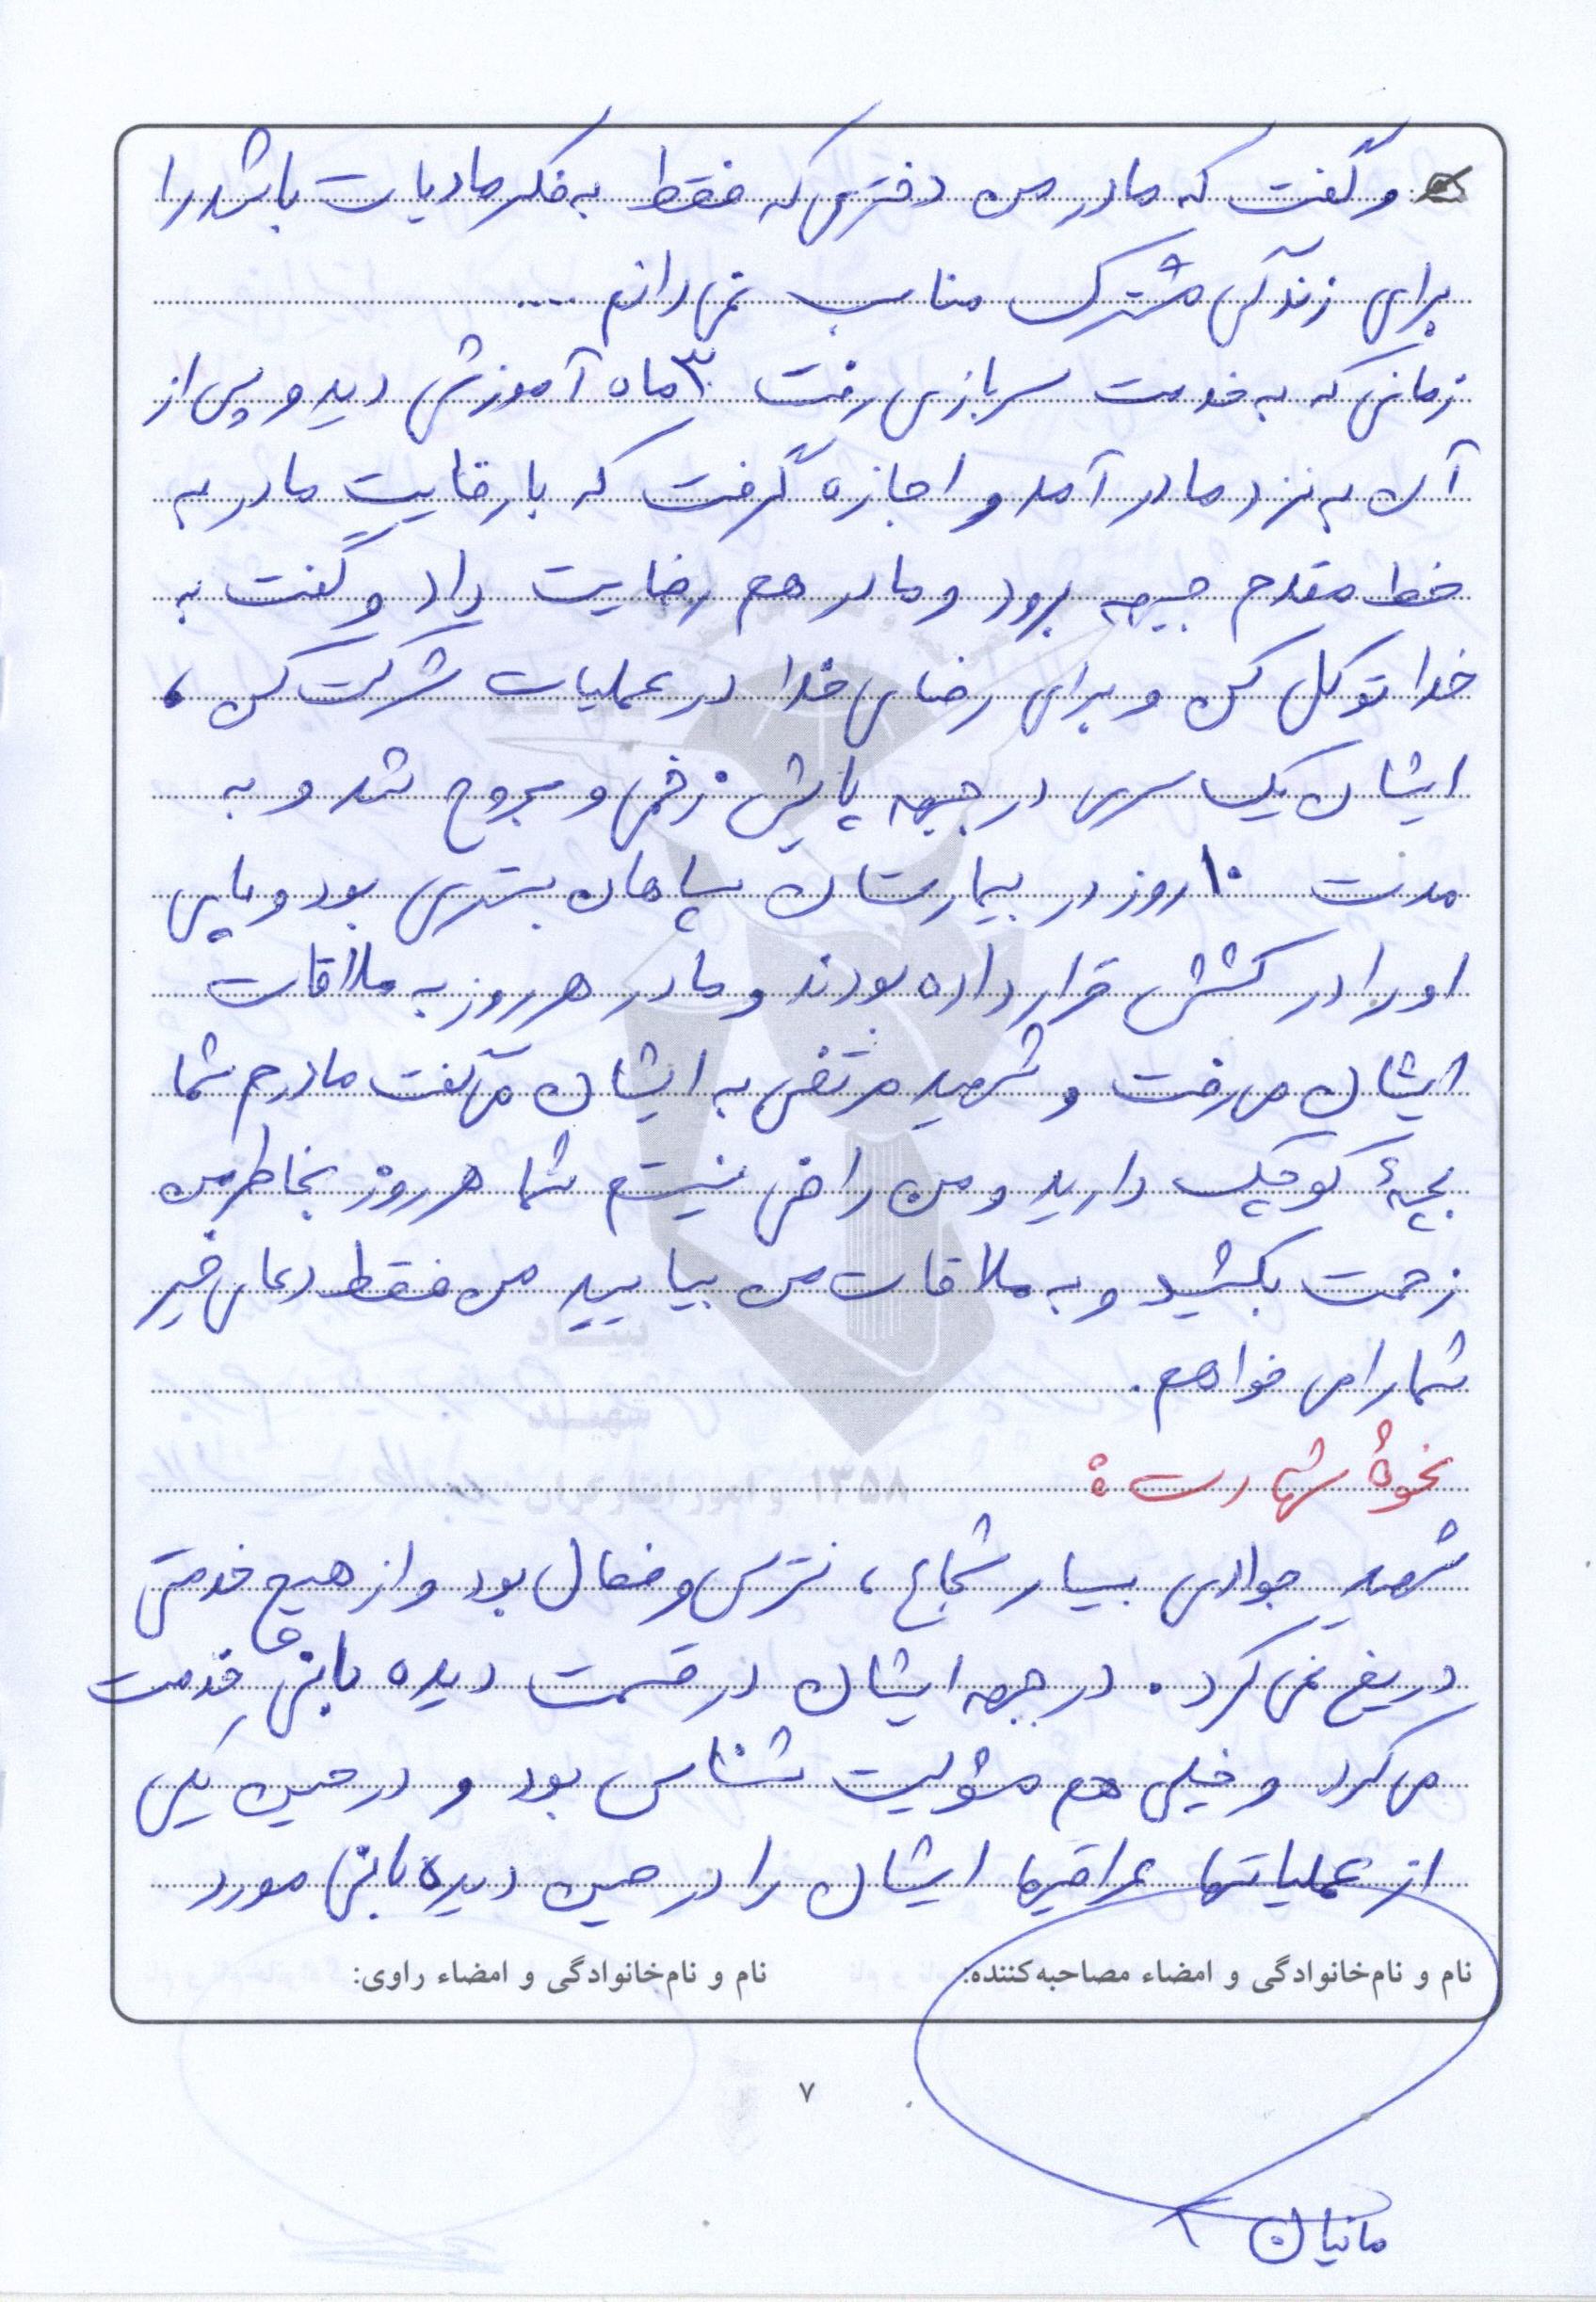 و گفت که مادر من دختری که فقط به فکر مادیات باشد را
برای زندگی مشترک مناسب نمی دانم ....
زمانی که به خدمت سربازی رفت ۳ ماه آموزش دید و پس از
آن به نزد مادر آمد و اجازه گرفت که با رضایت مادر به
خط مقدم جبهه برود و مادر هم رضایت داد و گفت به
خدا توکل کن و برای رضای خدا در عملیات شرکت کن ،
ایشان یک سری در جبهه پایش زخمی و مجروح شد و به
مدت ۱۰ روز در بیمارستان سپاهان بستری بود و پای
او را در کشش قرار داده بودند و مادر هر روز به ملاقات
ایشان می رفت و شهید مرتضی به ایشان می گفت مادرم شما
بچهٔ کوچک دارید و من راضی نیستم شما هر روز بخاطر من
زحمت بکشید و به ملاقات من بیایید من فقط دعای خیر
شما را می خواهم .
نحوهٔ شهادت :
شهید جوادی بسیار شجاع ، نترس و فعال بود و از هیچ خدمتی
دریغ نمی کرد . در جبهه ایشان در قسمت دیده بانی ها خدمت
می کرد و خیلی هم مسؤلیت شناس بود و در حین یکی
از عملیاتها عراقیها ایشان را در حین دیده بانی مورد
نام و نام‌خانوادگی و امضاء مصاحبه‌کننده: نام و نام‌خانوادگی و امضاء راوی:
۷
مانیان